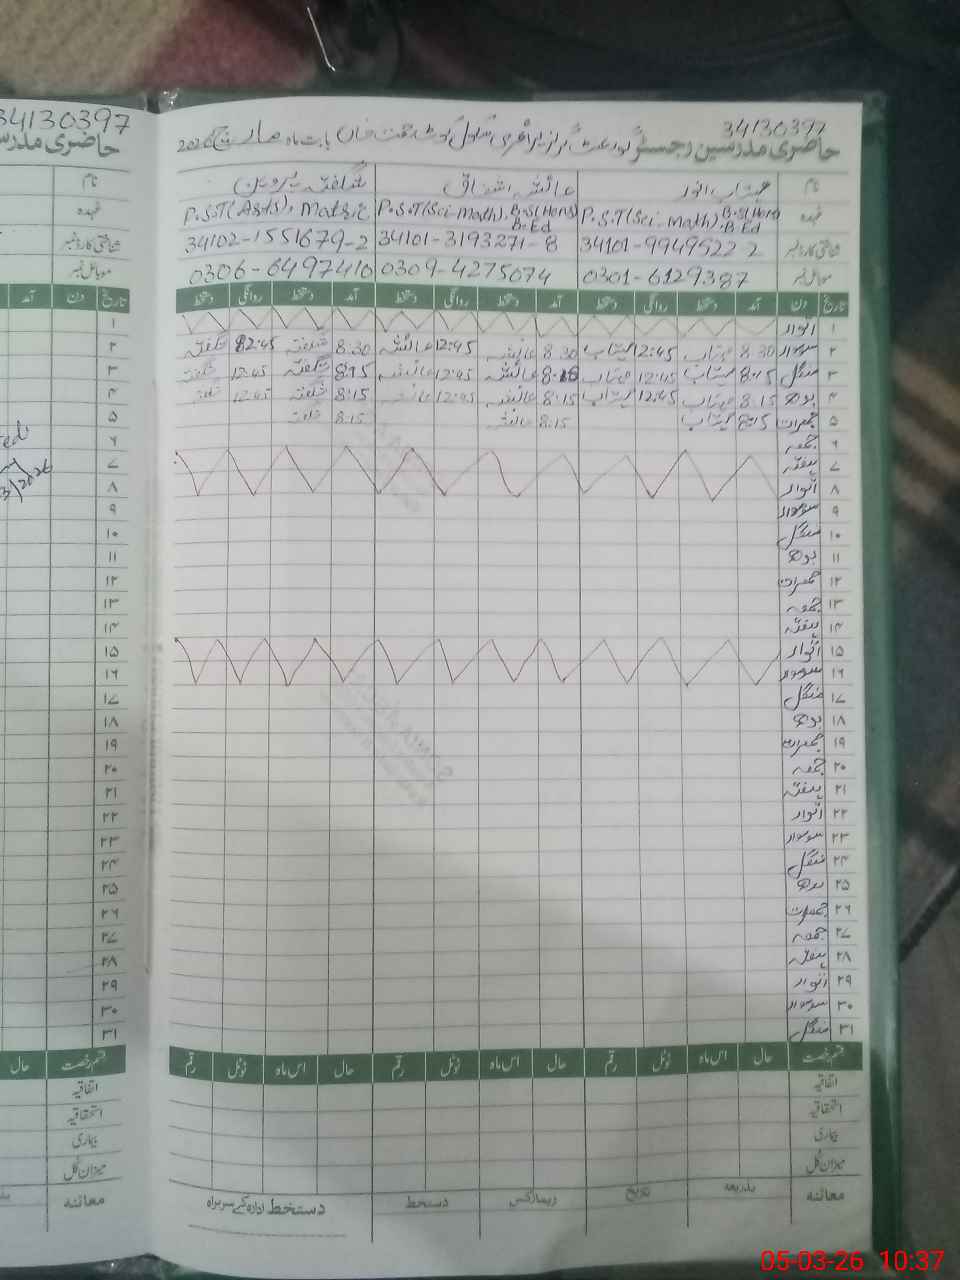 34130397
حاضری مدرسین رجسٹر گورنمنٹ گرلز پرائمری سکول کوٹ رحمت خان بابت ماہ مارچ 2026
نام مہتاب انور عائشہ اشفاق شگفتہ پروین
عہدہ P.S.T(Sci-Math). B.S(Hons) B.Ed P.S.T(Sci-Math). B.S(Hons) B.Ed P.S.T(Arts), Matric
شناختی کارڈ نمبر 34101-9949522 2 34101-3193271-8 34102-1551679-2
موبائل نمبر 0301-6129387 0309-4275074 0306-6497410
تاریخ دن آمد دستخط روانگی دستخط آمد دستخط روانگی دستخط آمد دستخط روانگی دستخط
۱ اتوار
۲ سوموار 8.30 مہتاب 12:45 مہتاب 8.30 عائشہ 12:45 عائشہ 8.30 شگفتہ 12:45 شگفتہ
۳ منگل 8:15 مہتاب 12:45 مہتاب 8:15 عائشہ 12:45 عائشہ 8:15 شگفتہ 12:45 شگفتہ
۴ بدھ 8.15 مہتاب 12:45 مہتاب 8:15 عائشہ 12:45 عائشہ 8:15 شگفتہ 12:45 شگفتہ
۵ جمعرات 8:15 مہتاب 8:15 عائشہ 8:15 شگفتہ
۶ جمعہ
۷ ہفتہ
۸ اتوار
۹ سوموار
۱۰ منگل
۱۱ بدھ
۱۲ جمعرات
۱۳ جمعہ
۱۴ ہفتہ
۱۵ اتوار
۱۶ سوموار
۱۷ منگل
۱۸ بدھ
۱۹ جمعرات
۲۰ جمعہ
۲۱ ہفتہ
۲۲ اتوار
۲۳ سوموار
۲۴ منگل
۲۵ بدھ
۲۶ جمعرات
۲۷ جمعہ
۲۸ ہفتہ
۲۹ اتوار
۳۰ سوموار
۳۱ منگل
قسم رخصت حال اس ماہ ٹوٹل رقم حال اس ماہ ٹوٹل رقم حال اس ماہ ٹوٹل رقم
اتفاقیہ
استحقاقیہ
بیماری
میزان کل
معائنہ بذریعہ تاریخ ریمارکس دستخط دستخط ادارہ کے سربراہ
34130397
حاضری مدرس
نام
عہدہ
شناختی کارڈ نمبر
موبائل نمبر
تاریخ دن آمد
۱
۲
۳
۴
۵
۶
۷
۸
۹
۱۰
۱۱
۱۲
۱۳
۱۴
۱۵
۱۶
۱۷
۱۸
۱۹
۲۰
۲۱
۲۲
۲۳
۲۴
۲۵
۲۶
۲۷
۲۸
۲۹
۳۰
۳۱
3/2026
قسم رخصت حال
اتفاقیہ
استحقاقیہ
بیماری
میزان کل
معائنہ
05-03-26 10:37